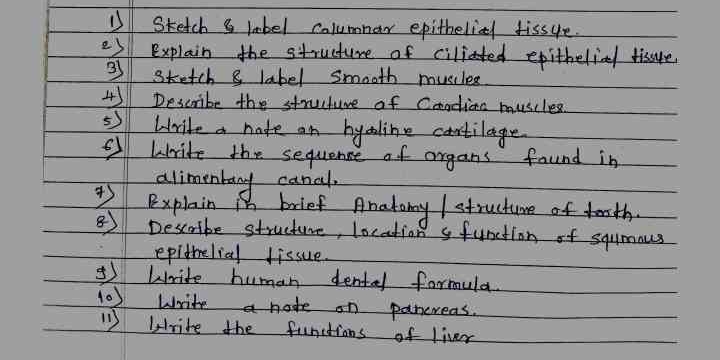 1) Sketch & label columnar epithelial tissue.
2) Explain the structure of ciliated epithelial tissue.
3) Sketch & label Smooth muscles
4) Describe the structure of Cardiac muscles.
5) Write a note on hyaline cartilage.
6) Write the sequence of organs found in
alimentary canal.
7) Explain in brief Anatomy / structure of tooth.
8) Describe structure, location & function of squmous
epithelial tissue.
9) Write human dental formula.
10) Write a note on pancreas.
11) Write the functions of liver